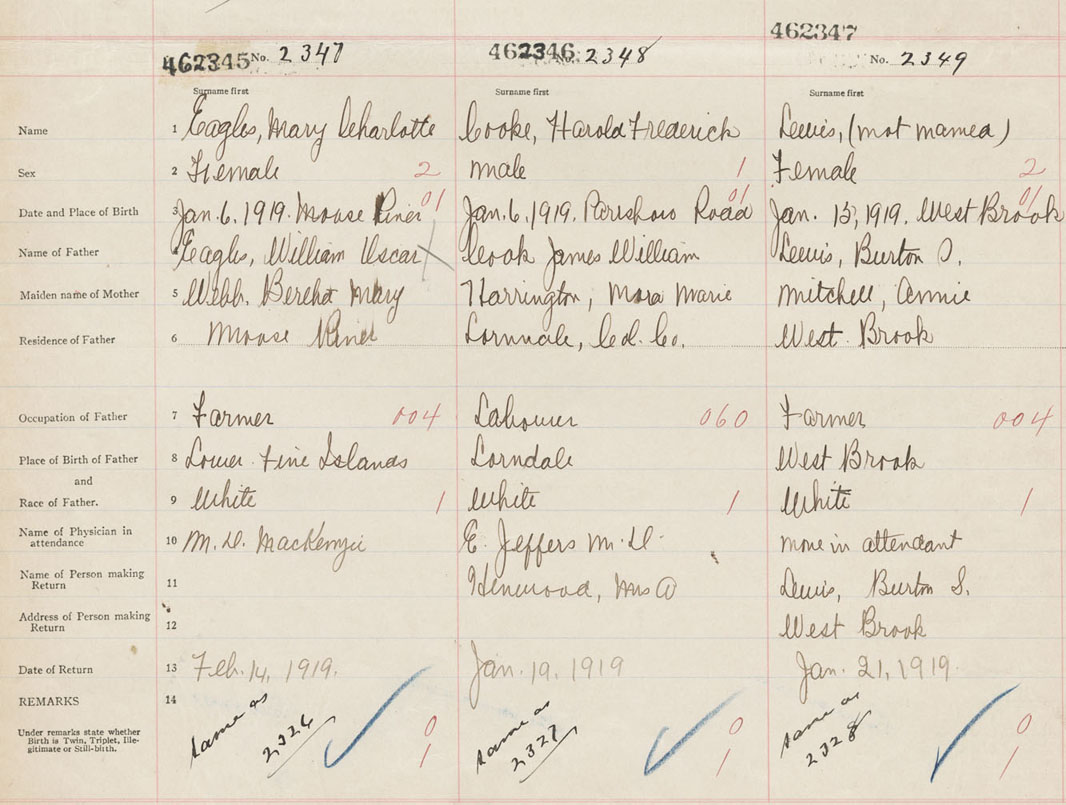 462345 No. 2347 462346 No. 2348 462347 No. 2349
Surname first Surname first Surname first
Name 1 Eagles, Mary Charlotte Cooke, Harold Frederick Lewis, (not named)
Sex 2 Female 2 male 1 Female 2
Date and Place of Birth 3 Jan. 6, 1919. Moose River 01 Jan. 6, 1919. Road 01 Jan. 15, 1919. West Brook 01
Name of Father 4 Eagles, William Oscar Cook James William Lewis, Burton
Maiden name of Mother 5 Webb. Bertha Mary Harrington, Marie Mitchell, Annie
Residence of Father 6 Moose River Co. West Brook
Occupation of Father 7 Farmer 004 Labourer 060 Farmer 004
Place of Birth of Father 8 Lower Five Islands Lorndale West Brook
and
Race of Father. 9 White 1 White 1 White 1
Name of Physician in
attendance 10 M. D. MacKenzie E. Jeffers M. D. none in attendant
Name of Person making
Return 11 Henwood, Mrs A Lewis, Burton S.
Address of Person making
Return 12 West Brook
Date of Return 13 Feb. 14, 1919. Jan. 19, 1919 Jan. 21, 1919.
REMARKS 14
Under remarks state whether
Birth is Twin, Triplet, Ille-
gitimate or Still-birth.
same as 2326 0 1 same as 2327 0 1 same as 2328 0 1